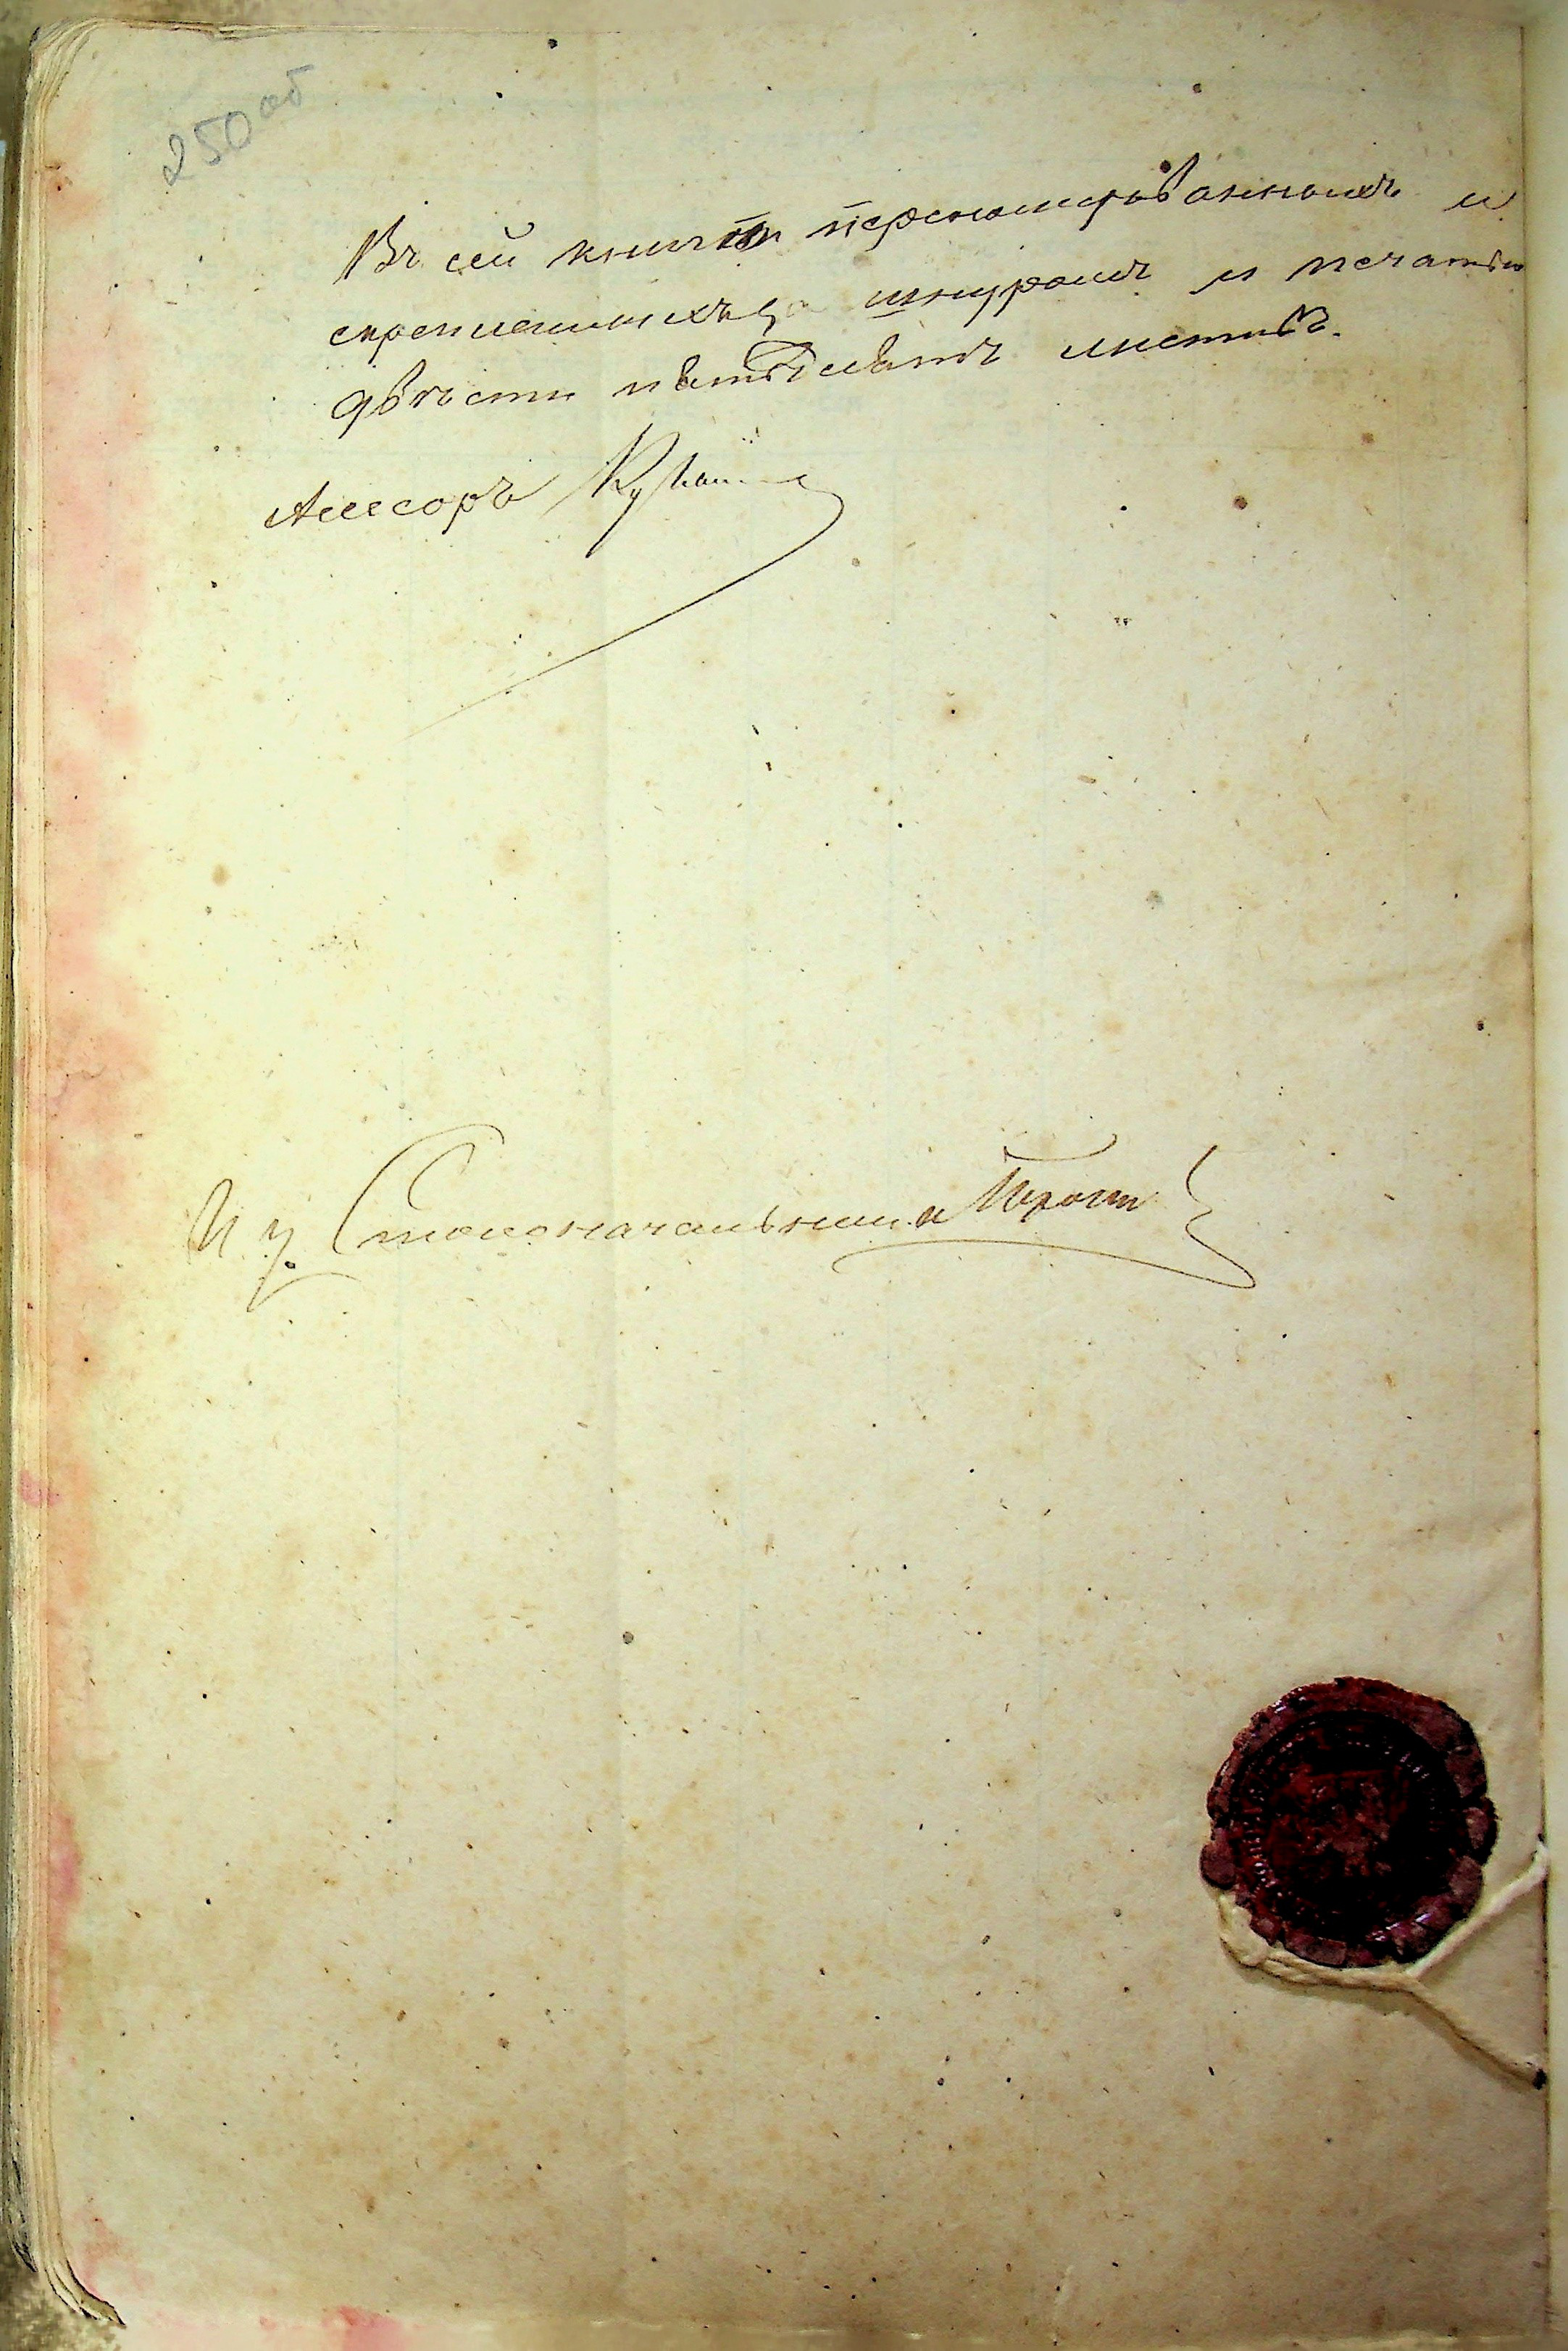 250 об
Въ сей книгѣ перенумерованныхъ и
скрепленныхъ за шнуромъ и печатью
двѣсти пятьдесятъ листовъ.
Асесоръ
И. у. Столоначальника